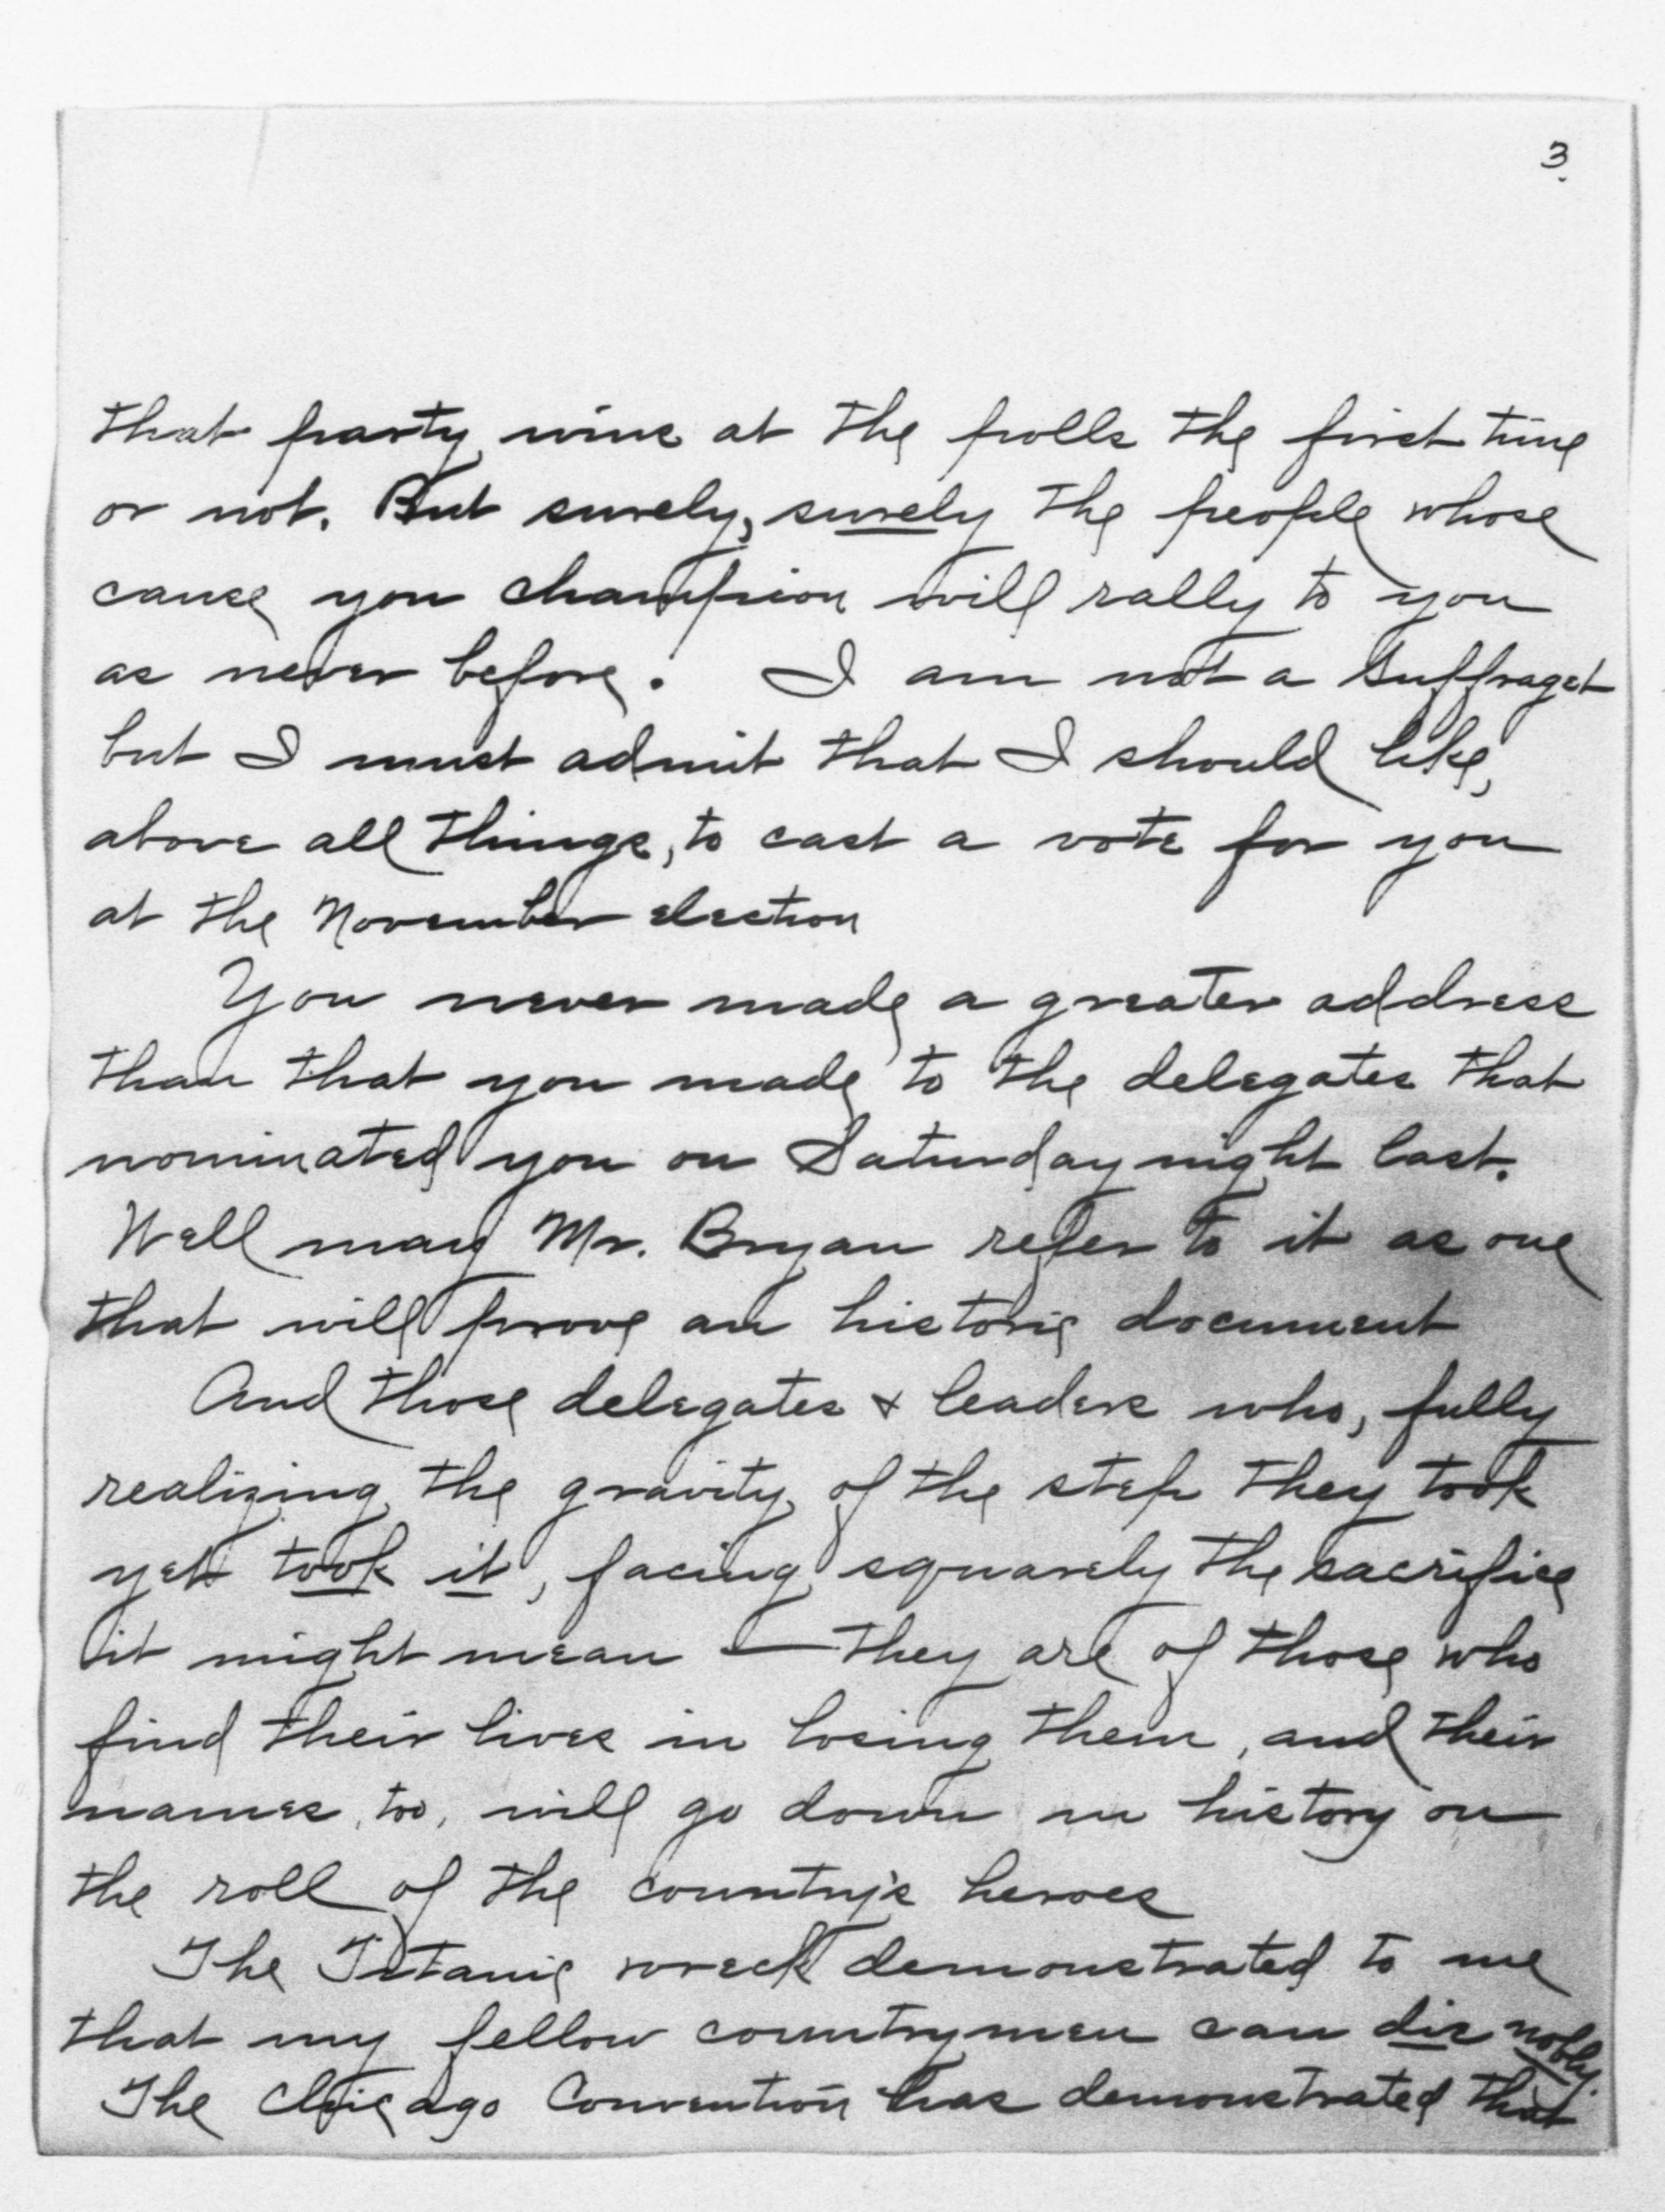 3.
that party wins at the polls the first time
or not. But surely, surely the people whose
cause you champion will rally to you
as never before. I am not a Suffraget
but I must admit that I should like,
above all things, to cast a vote for you
at the November election
You never made a greater address
than that you made to the delegates that
nominated you on Saturday night last.
Well may Mr. Bryan refer to it as one
that will prove an historic document
And those delegates & leaders who, fully
realizing the gravity of the step they took
yet took it, facing squarely the sacrifice
it might mean — they are of those who
find their lives in losing them, and their
names, too, will go down in history on
the roll of the country's heroes
The Titanic wreck demonstrated to me
that my fellow countrymen can die nobly.
The Chicago Convention has demonstrated that